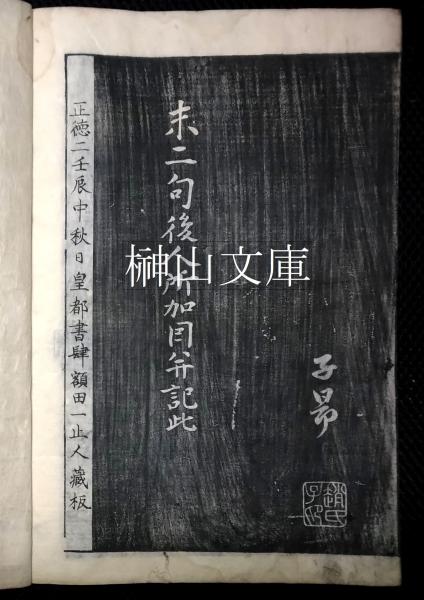 末二句後人所加因并記此
子昂
趙氏子昂
正徳二壬辰中秋日皇都書肆額田一止人藏板
榊山文庫